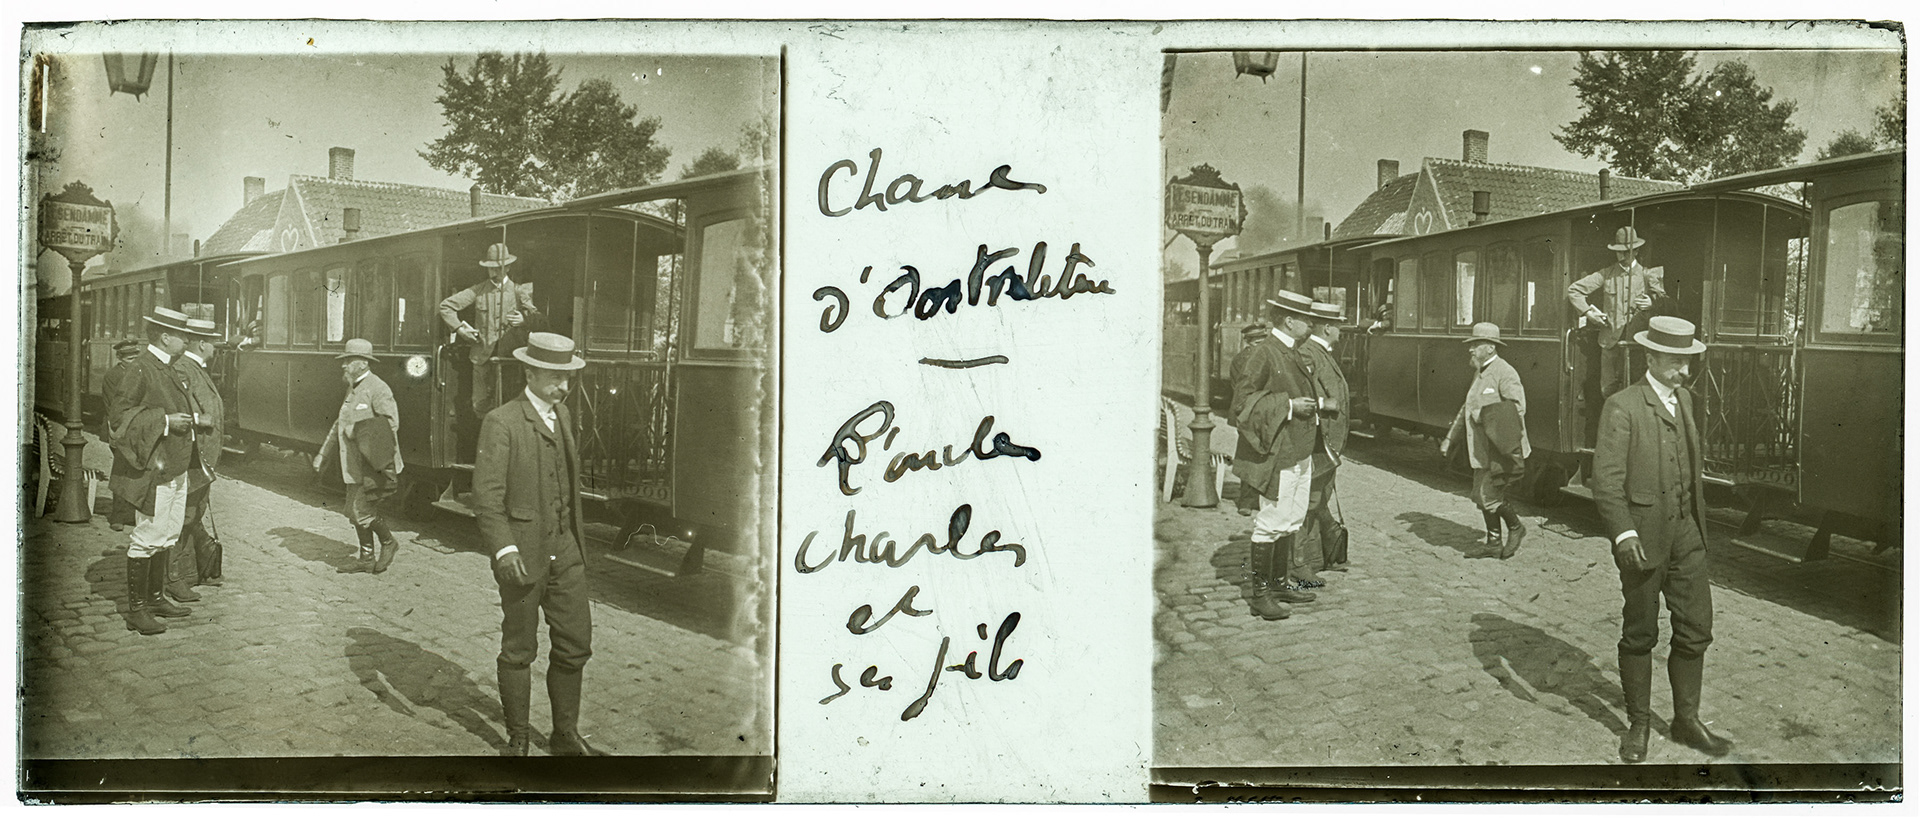 SENDAMME
ARRÊT DU TRAM
Chasse
d'Oostvleteren
—
L'oncle
Charles
et
ses fils
ESENDAMME
ARRÊT DU TRAM